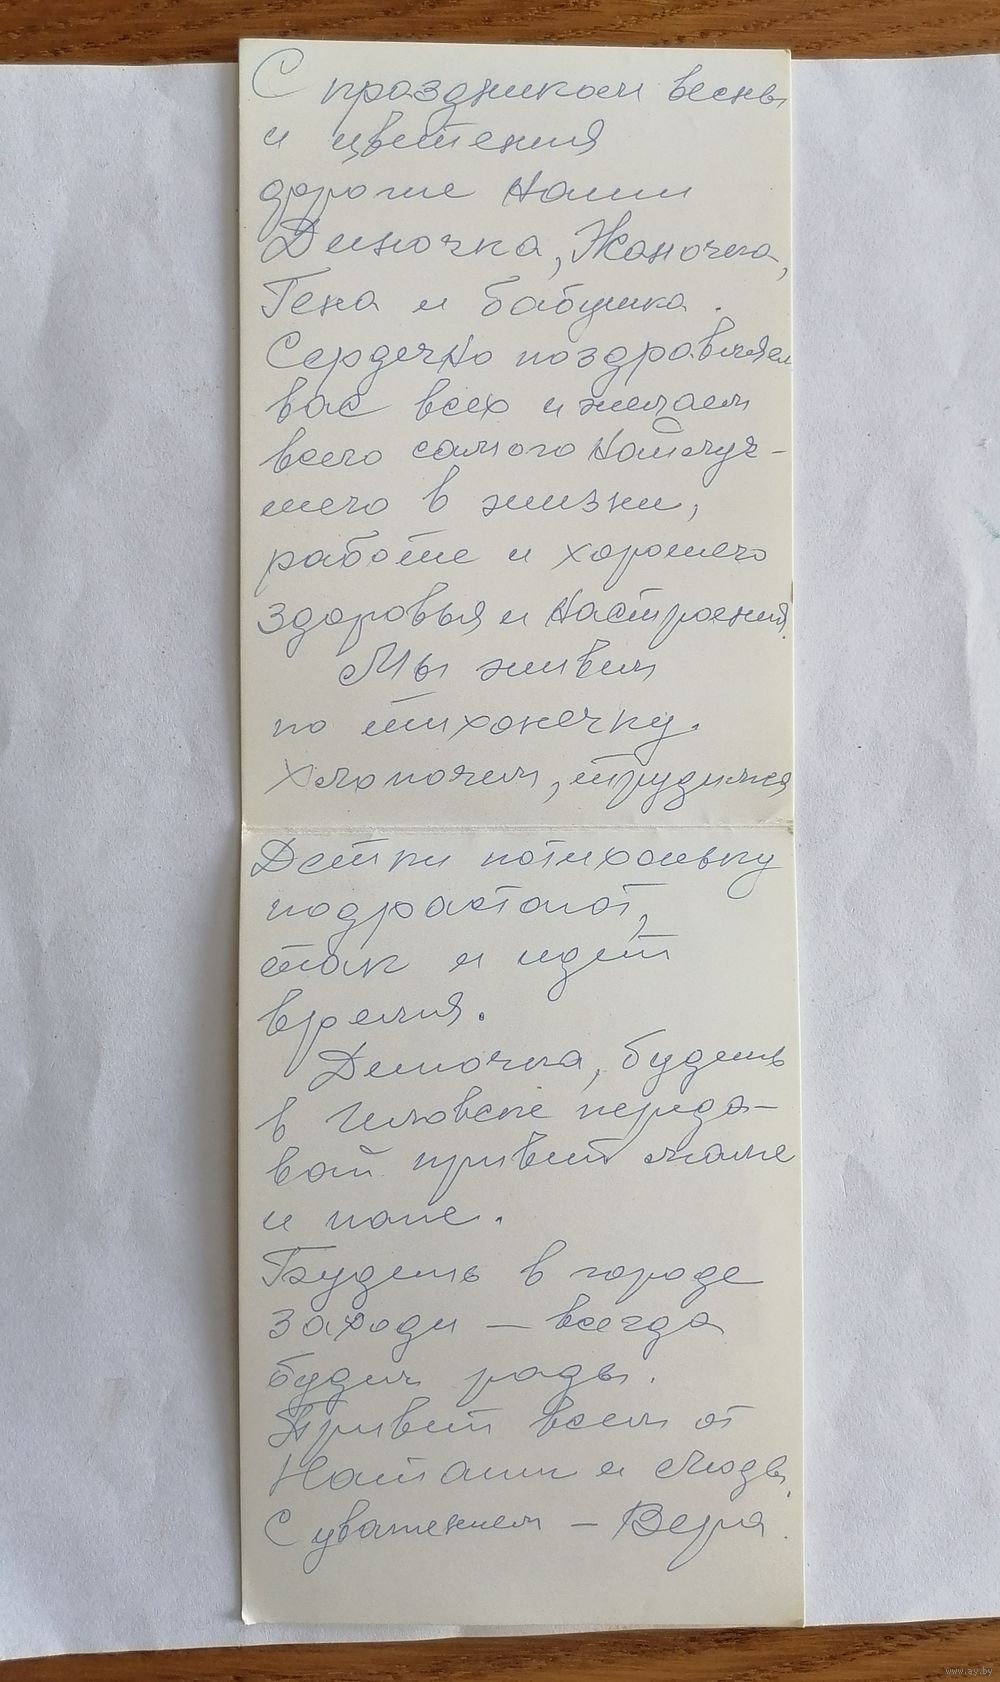 С праздником весны
и цветения
дорогие наши
Диночка, Жаночка,
Гена и бабушка.
Сердечно поздравляем
вас всех и желаем
всего самого наилуч-
шего в жизни,
работе и хорошего
здоровья и настроения.
Мы живем
по тихонечку.
Хлопочем, трудимся
Детки потихоньку
подрастают,
так и идет
время.
Диночка, будешь
в переда-
вай привет маме
и папе.
Будешь в городе
заходи – всегда
будем рады.
Привет всем от
Наташи и Люды.
С уважением – Вера.
www.ay.by